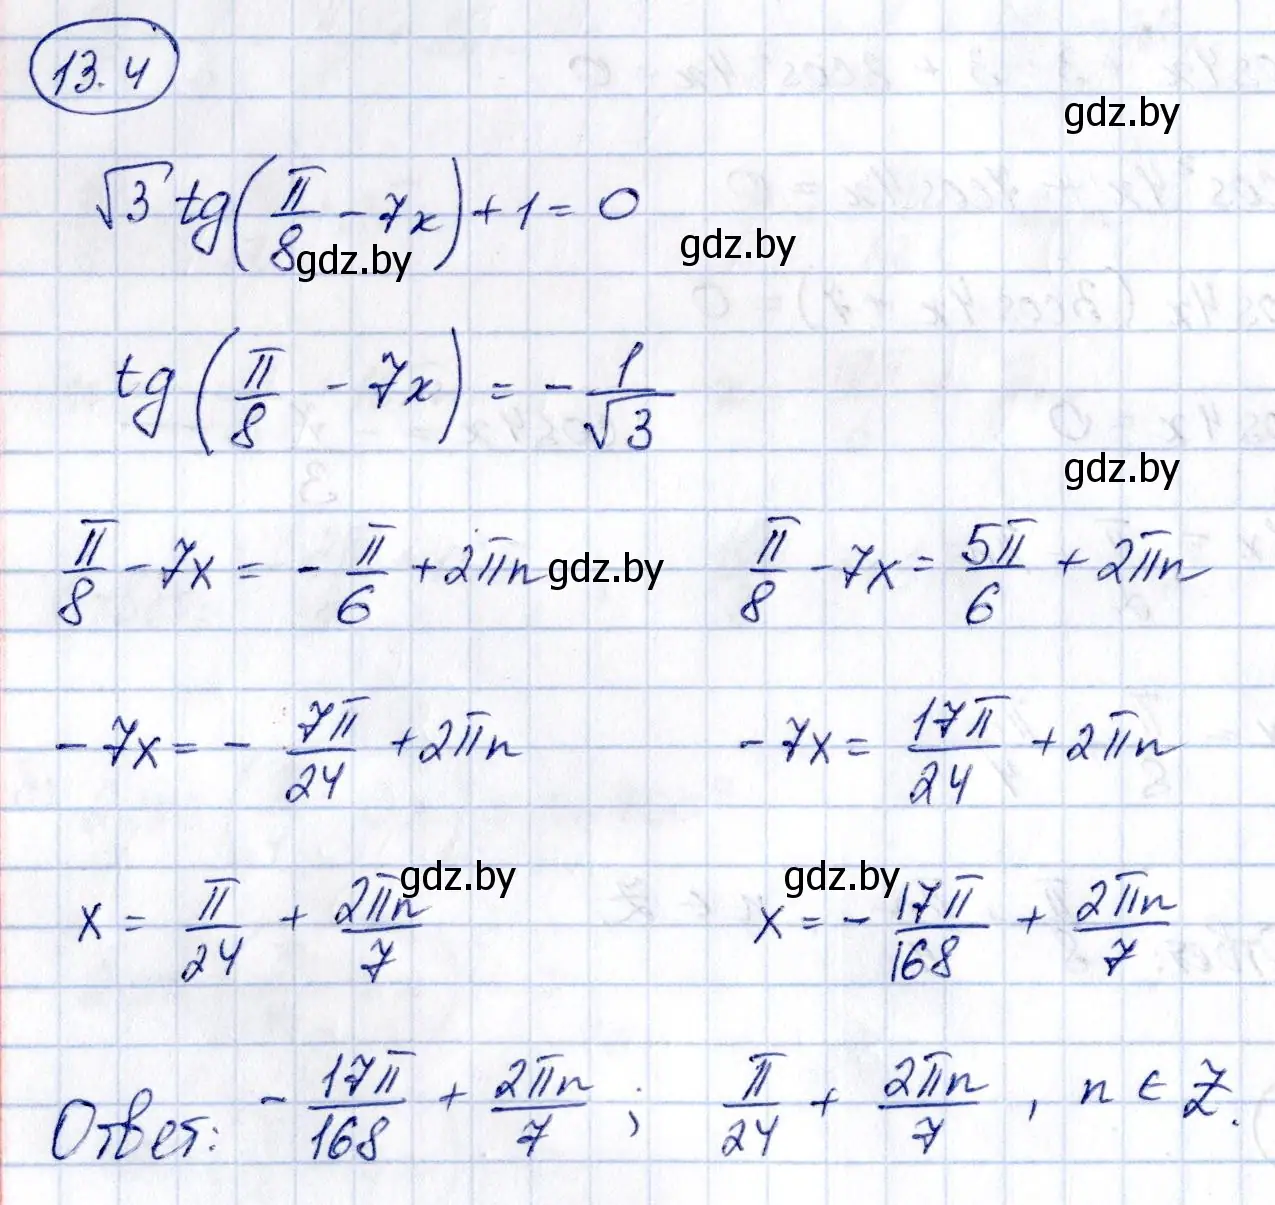 13.4
gdz.by
√3 tg(π/8 - 7x) + 1 = 0
gdz.by gdz.by
tg(π/8 - 7x) = - 1/√3
gdz.by
π/8 - 7x = - π/6 + 2πn gdz.by π/8 - 7x = 5π/6 + 2πn
- 7x = - 7π/24 + 2πn - 7x = 17π/24 + 2πn
gdz.by gdz.by
x = π/24 + 2πn/7 x = - 17π/168 + 2πn/7
Ответ: - 17π/168 + 2πn/7 ; π/24 + 2πn/7 , n ∈ Z.